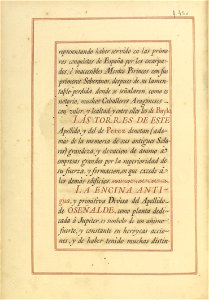 representando haber servido en las prime
ras conquistas de España por las escarpa-
das, è inaccesibles Montes Perineos con sus
primeros Soberanos, despues de su lamen-
table perdida, donde se señalaron, como es
notorio, muchos Caballeros Aragoneses
con valor, y lealtad, y entre ellos los de
LAS TORRES DE ESTE
Apellido, y del de Perez denotan (ade-
mas de la memoria de sus antiguos Sola-
res) grandeza, y elevacion de animo à
empresas grandes por la superioridad de
su fuerza, y formacion, en que excede à
los demás edificios.
LA ENCINA ANTI
gua, y primitiva Divisa del Apellido
de OSENALDE, como planta dedica
da à Jupiter, es simbolo de un animo
fuerte, y constante en heroycas accio-
nes, y de haber tenido muchas distin